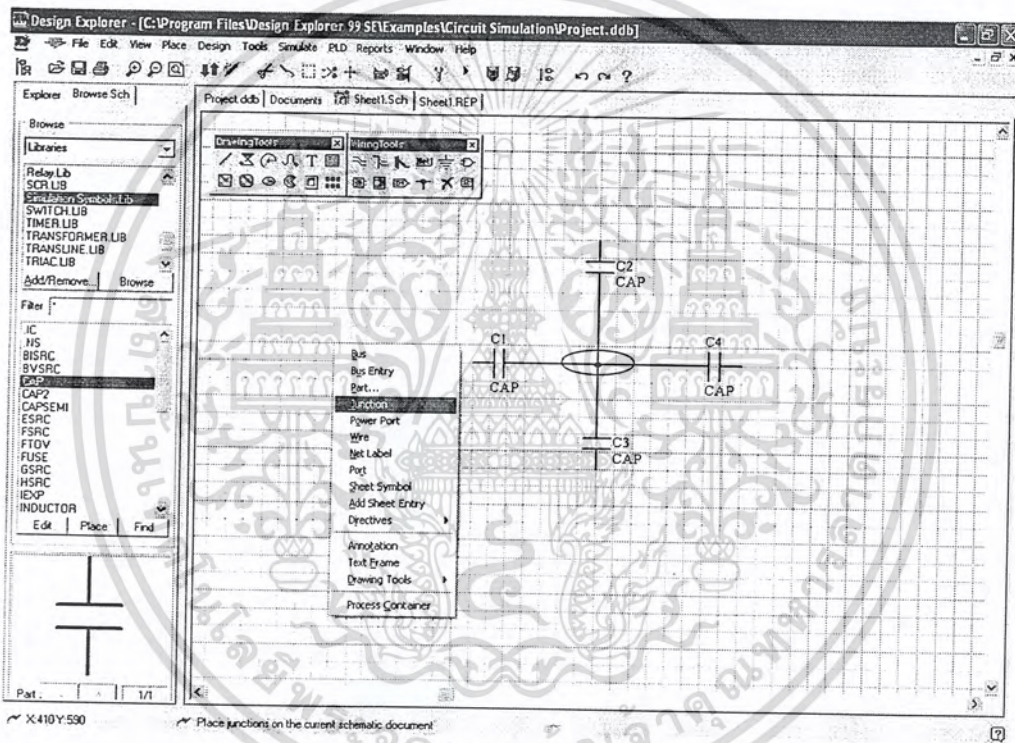 Design Explorer - [C:\Program Files\Design Explorer 99 SE\Examples\Circuit Simulation\Project.ddb]
File Edit View Place Design Tools Simulate PLD Reports Window Help
Explorer Browse Sch
Project.ddb Documents Sheet1.Sch Sheet1.REP
Browse
Libraries
Relay.Lib
SCR.LIB
Simulation Symbols.Lib
SWITCH.LIB
TIMER.LIB
TRANSFORMER.LIB
TRANSLINE.LIB
TRIAC.LIB
Add/Remove... Browse
Filter *
.IC
.NS
BISRC
BVSRC
CAP
CAP2
CAPSEMI
ESRC
FSRC
FTOV
FUSE
GSRC
HSRC
IEXP
INDUCTOR
Edit Place Find
Part : 1/1
DrawingTools
WiringTools
C2
CAP
C1
CAP
C4
CAP
C3
CAP
Bus
Bus Entry
Part...
Junction
Power Port
Wire
Net Label
Port
Sheet Symbol
Add Sheet Entry
Directives
Annotation
Text Frame
Drawing Tools
Process Container
X:410 Y:590
Place junctions on the current schematic document